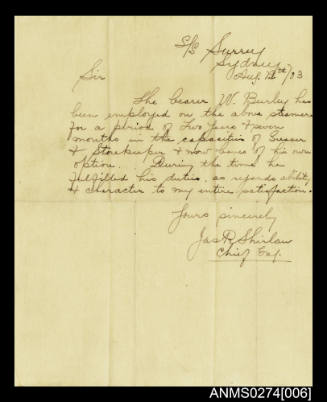 S/S Surrey
Sydney
Aug 12th/03
Sir
The bearer W. Burley has
been employed on the above steamer
for a period of Two years & seven
months in the capacities of Greaser
& Storekeeper & now leaves of his own
option. During the time he
fulfilled his duties, as regards ability
& character to my entire satisfaction.
Yours sincerely
Jas R Shirlaw
Chief Eng.
ANMS0274[006]